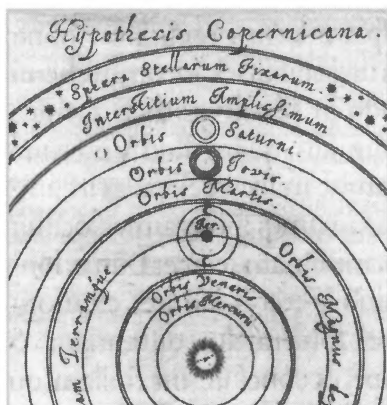 Hypothesis Copernicana.
Sphæra Stellarum Fixarum.
Interstitium Amplissimum
Orbis Saturni
Orbis Jovis
Orbis Martis.
Ter.
Orbis Magnus
Orbis Veneris
Orbis Mercurii
Terramque